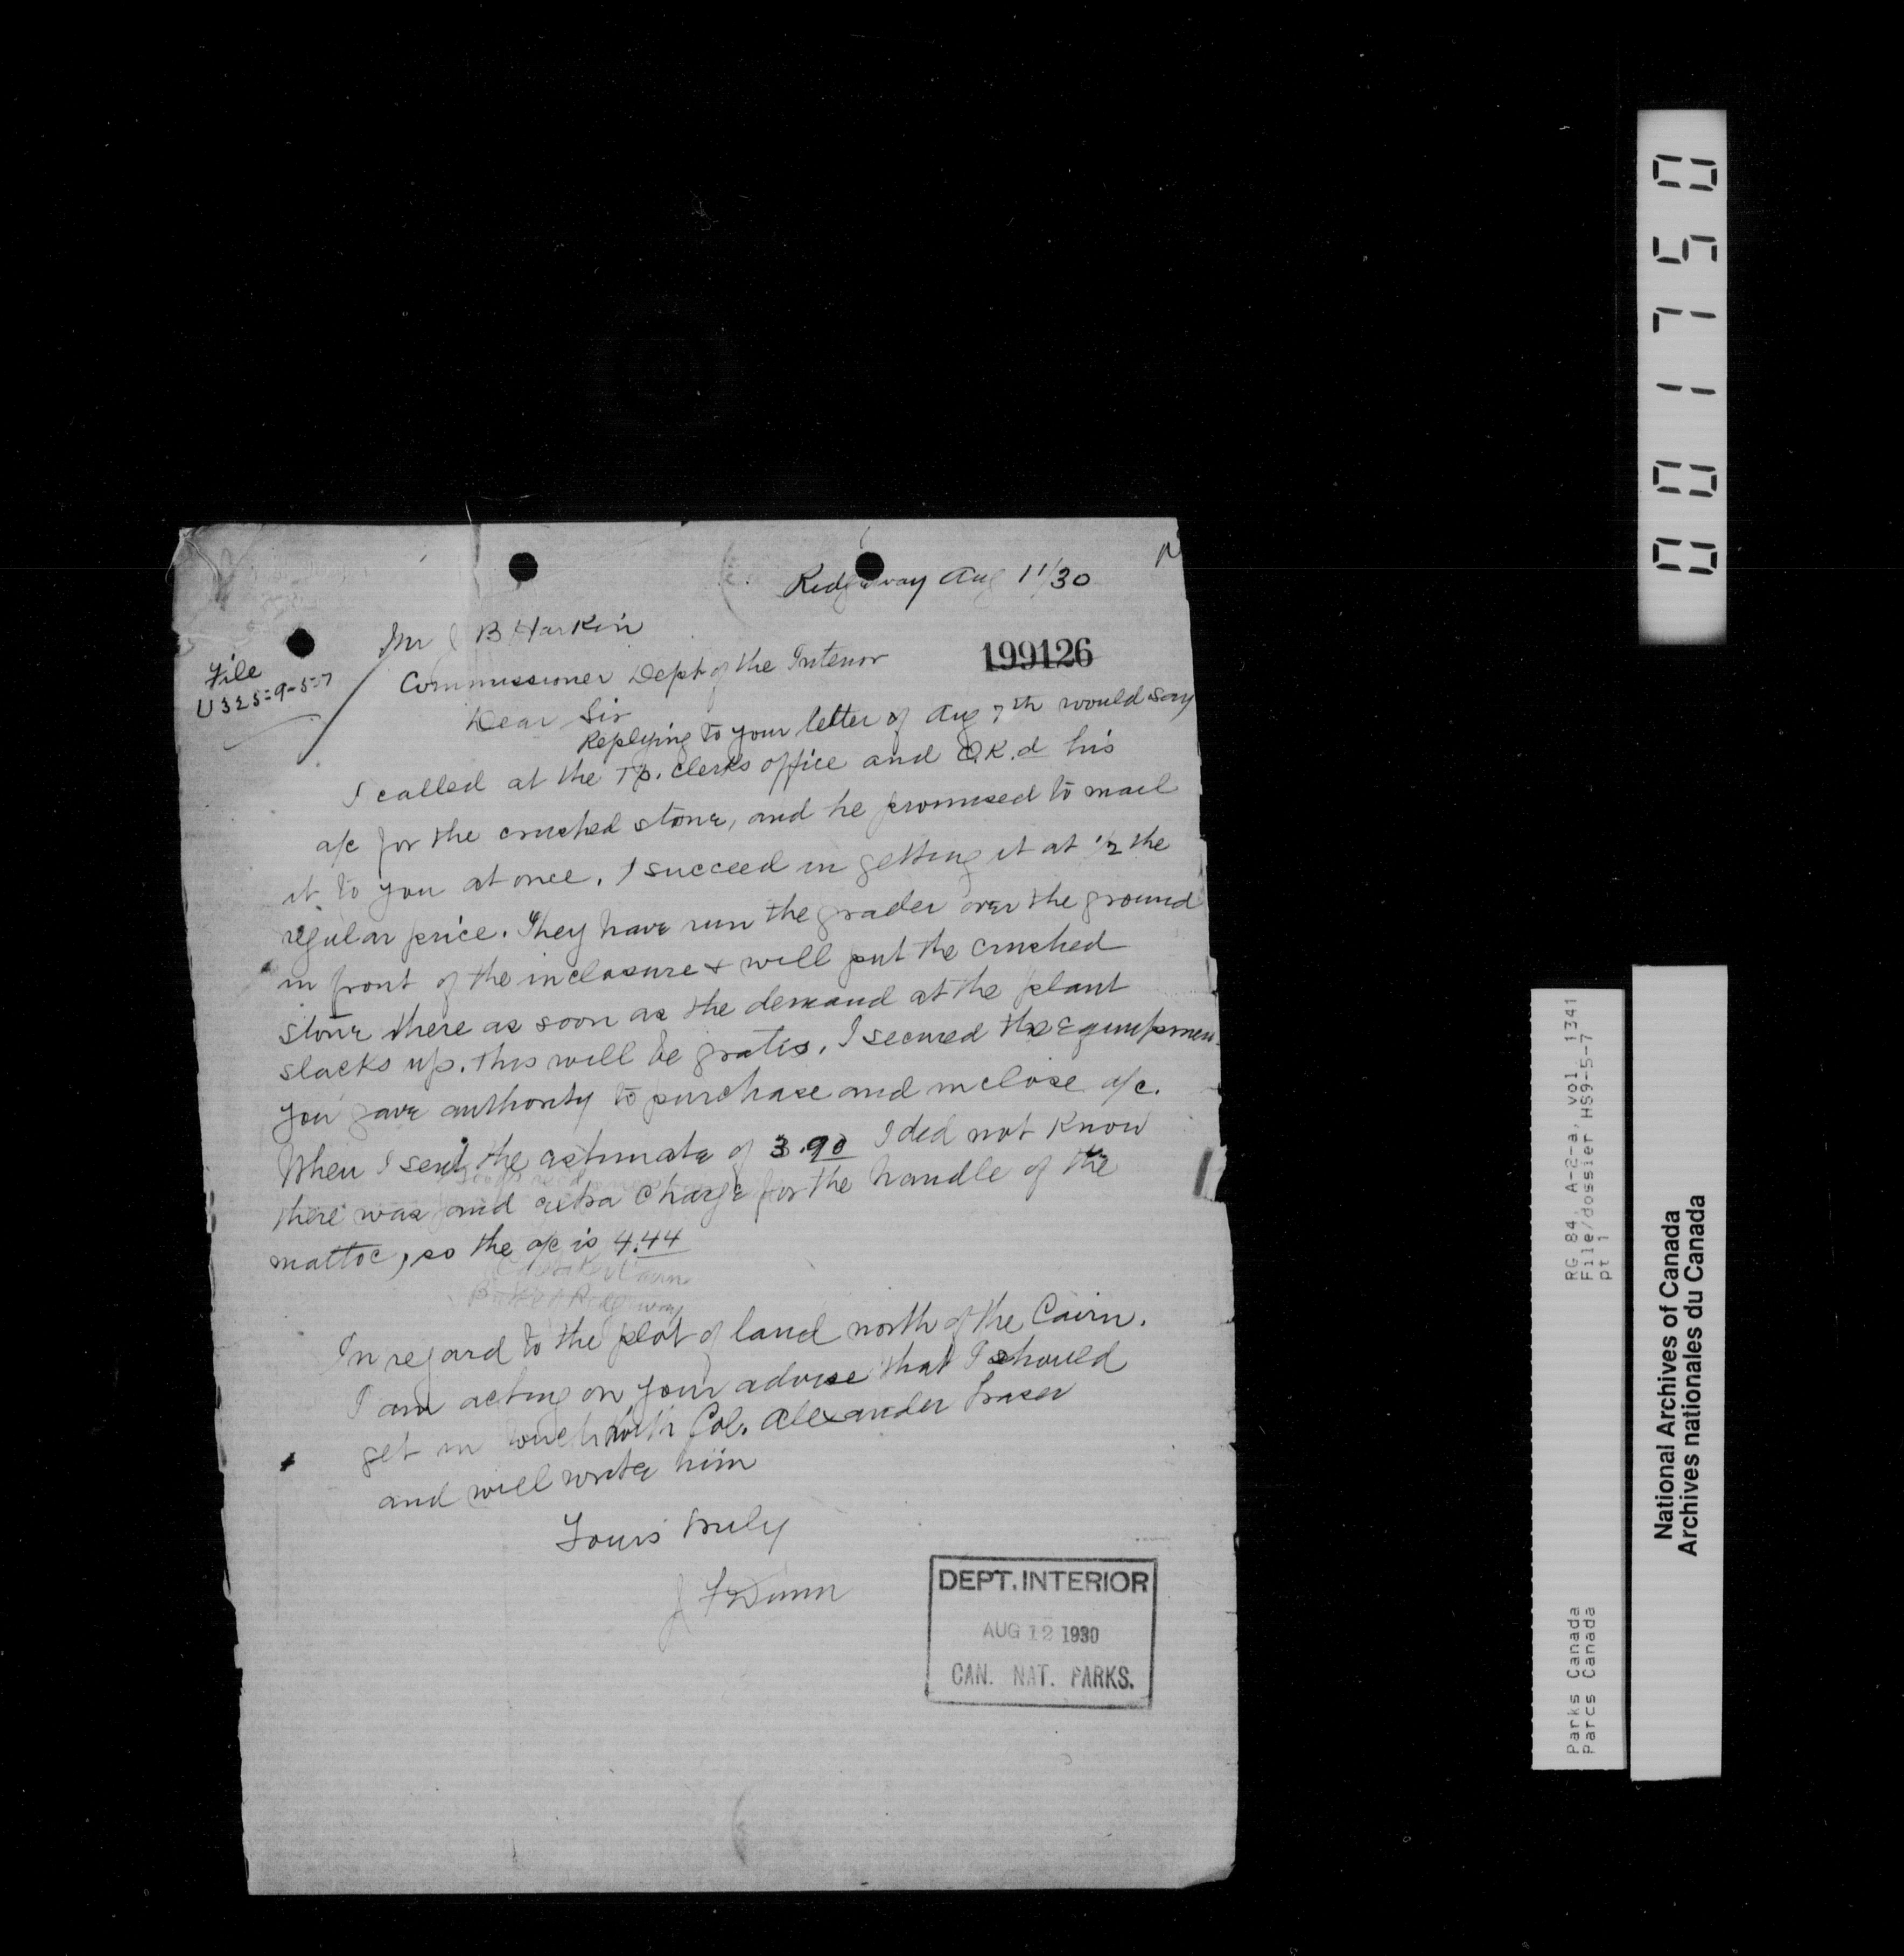 Ridgeway Aug 11/30
Mr J B Harkin
199126
File
U325-9-5-7
Commissioner Dept of the Interior
Dear Sir
Replying to your letter of Aug 7th would say
I called at the Tp. clerks office and O.K.d his
a/c for the crushed stone, and he promised to mail
it to you at once. I succeed in getting it at 1/2 the
regular price. They have run the grader over the ground
in front of the inclosure & will put the crushed
stone there as soon as the demand at the plant
slacks up. This will be gratis. I secured the equipmen
you gave authority to purchase and inclose a/c.
When I sent the estimate of 3.90 I did not know
there was and extra charge for the handle of the
mattoc, so the a/c is 4.44
Battle of Ridgeway
In regard to the plot of land north of the Cairn.
I am acting on your advise that I should
get in touch with Col. Alexander Fraser
and will write him
Yours truly
J F Dunn
DEPT. INTERIOR
AUG 12 1930
CAN. NAT. PARKS.
001750
RG 84, A-2-a, vol. 1341
File/dossier HS9-5-7
pt 1
Parks Canada
Parcs Canada
National Archives of Canada
Archives nationales du Canada